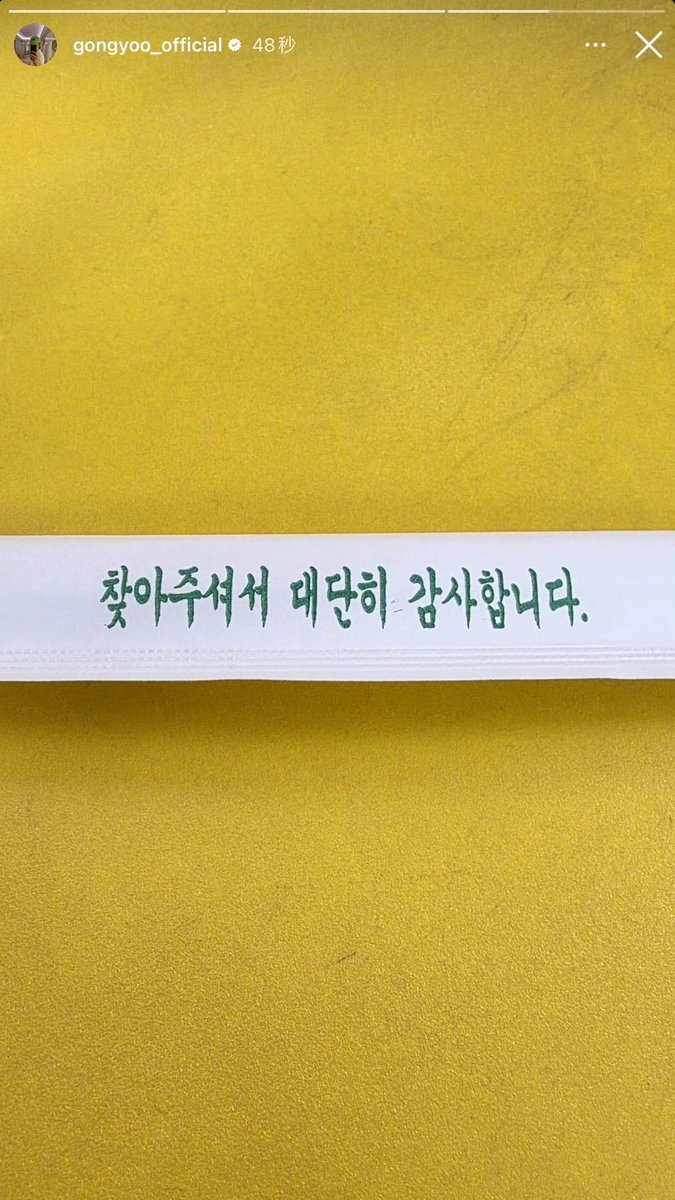 gongyoo_official 48秒
찾아주셔서 대단히 감사합니다.